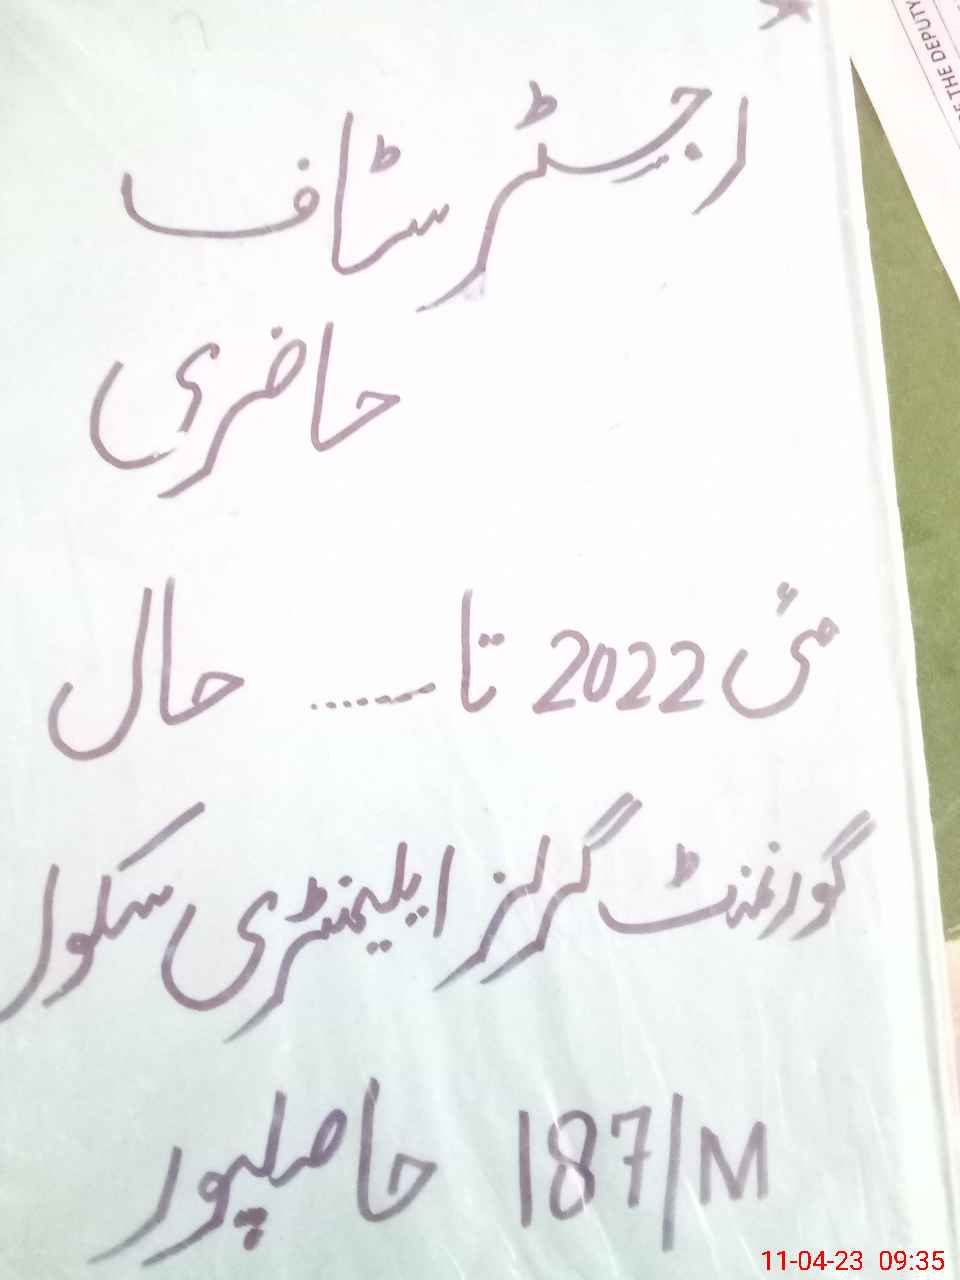 OF THE DEPUTY
رجسٹر سٹاف
حاضری
مئی 2022 تا ...... حال
گورنمنٹ گرلز ایلیمنٹری سکول
187/M حاصلپور
11-04-23 09:35